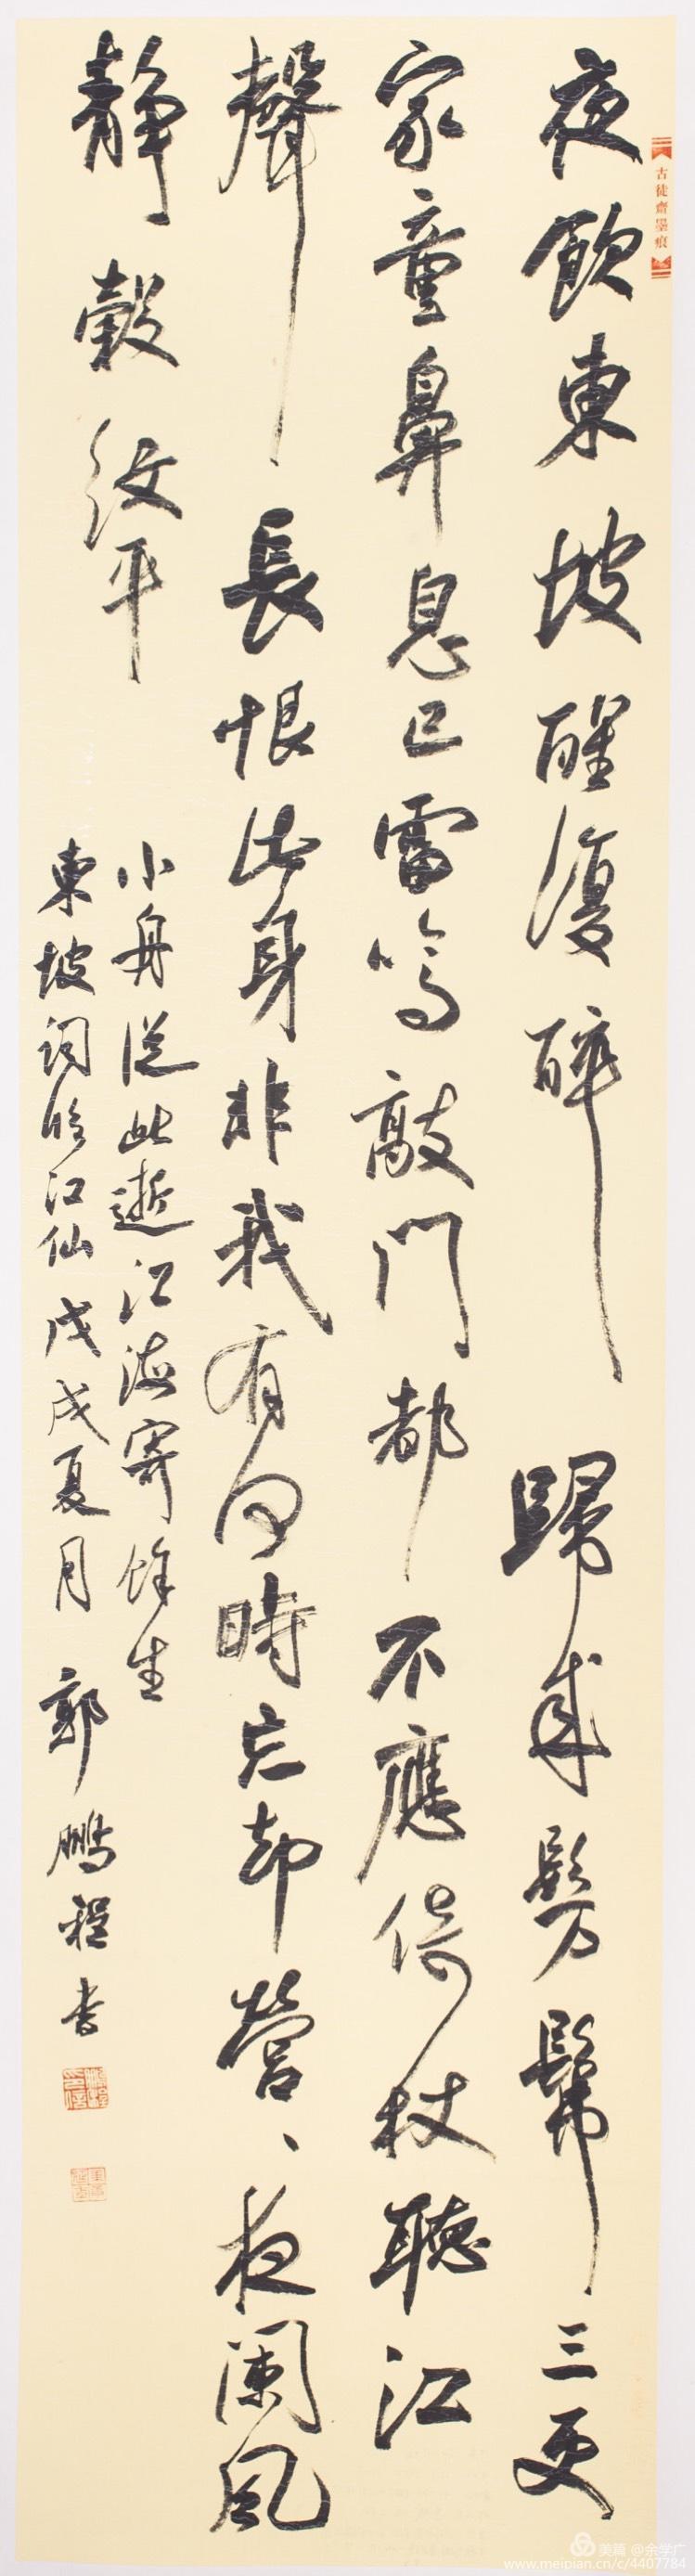 夜飲東坡醒復醉歸來髣髴三更
家童鼻息已雷鳴敲門都不應倚杖聽江
聲長恨此身非我有何時忘却營、夜闌風
靜縠紋平
小舟從此逝江海寄餘生
東坡詞臨江仙戊戌夏月郭鵬程书
古徒齋墨痕
美篇 @余学广
www.meipian.cn/c/4407784